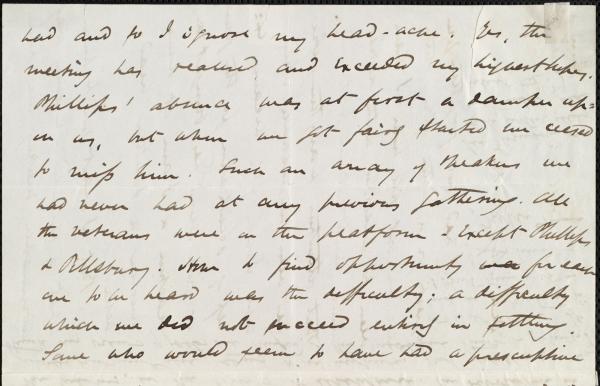 had and so I ignore my head-ache. Yes, the
meeting has realized and exceeded my highest hopes.
Phillips' absence was at first a damper up=
on us, but when we got fairly started we ceased
to miss him. Such an array of speakers we
had never had at any previous gathering. All
the veterans were on the platform except Phillips
& Pillsbury. How to find opportunity for each
one to be heard was the difficulty; a difficulty
which we did not succeed entirely in settling.
Some who would seem to have had a prescriptive